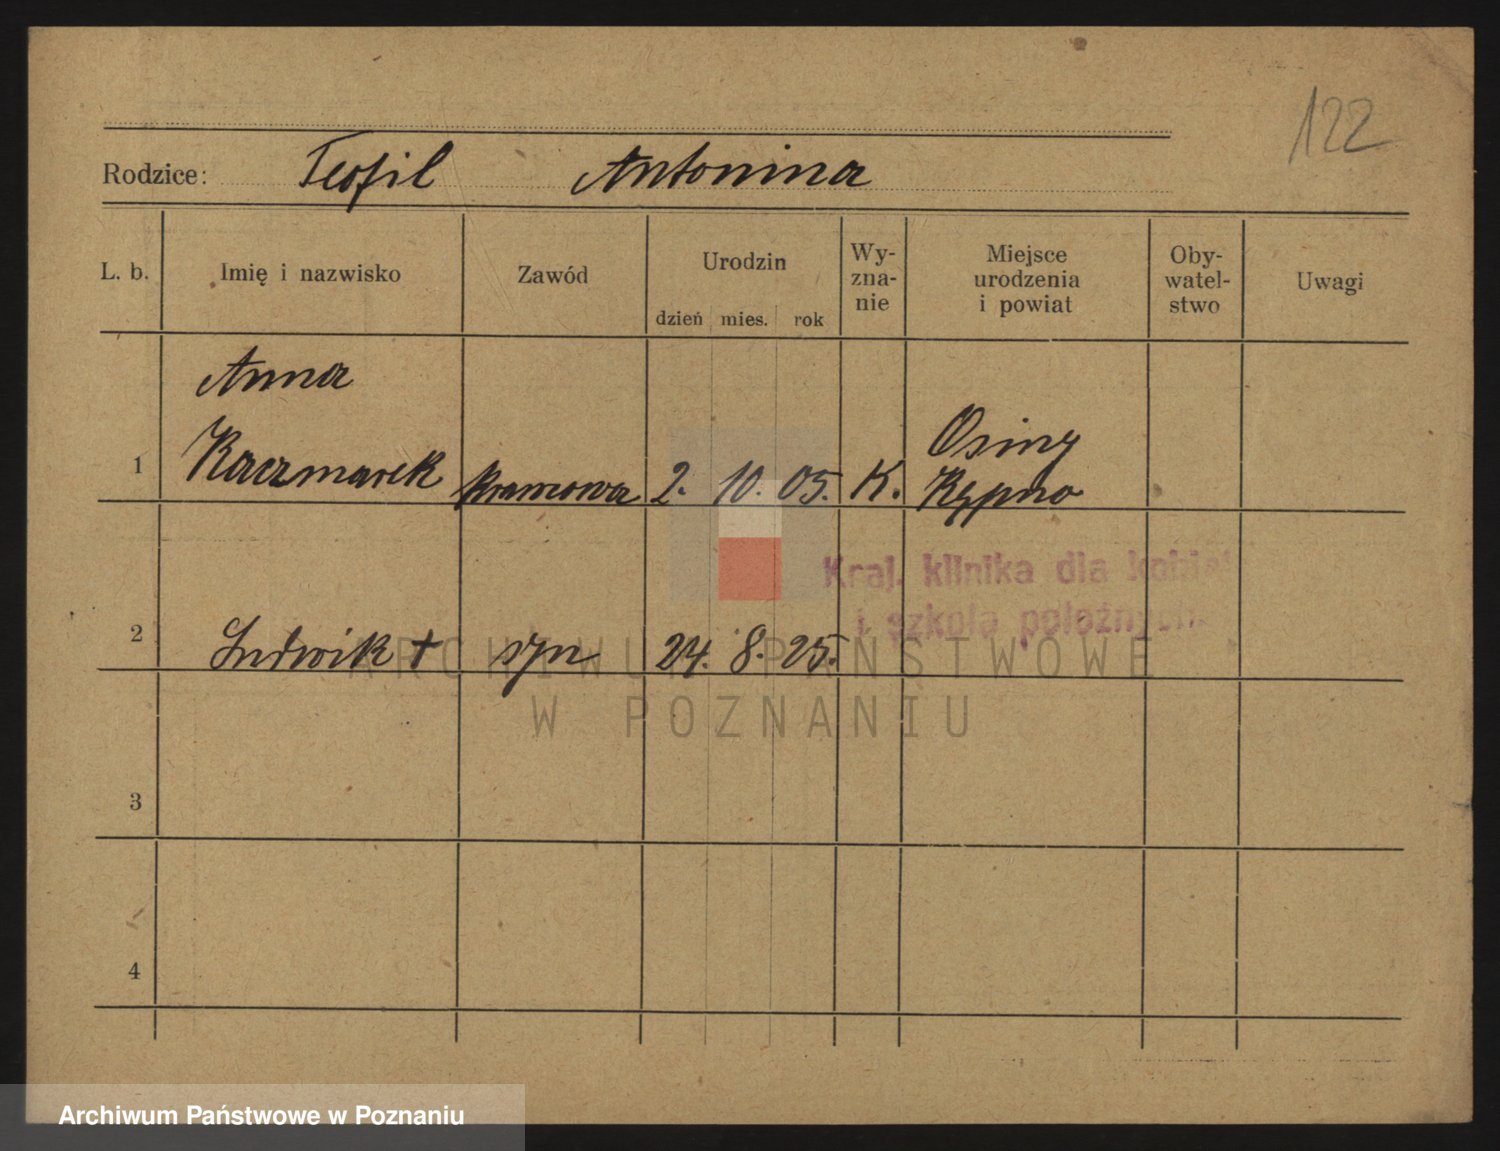 122
Rodzice: Teofil Antonina
L. b. Imię i nazwisko Zawód Urodzin dzień mies. rok Wy-zna-nie Miejsce urodzenia i powiat Oby-watel-stwo Uwagi
Anna
1 Kaczmarek krawcowa 2. 10. 05. K. Osiny
Kępno
Kraj. klinika dla kobiet
i szkoła położnych
2 Ludwik † syn 24. 8. 25.
ARCHIWUM PAŃSTWOWE
W POZNANIU
3
4
Archiwum Państwowe w Poznaniu